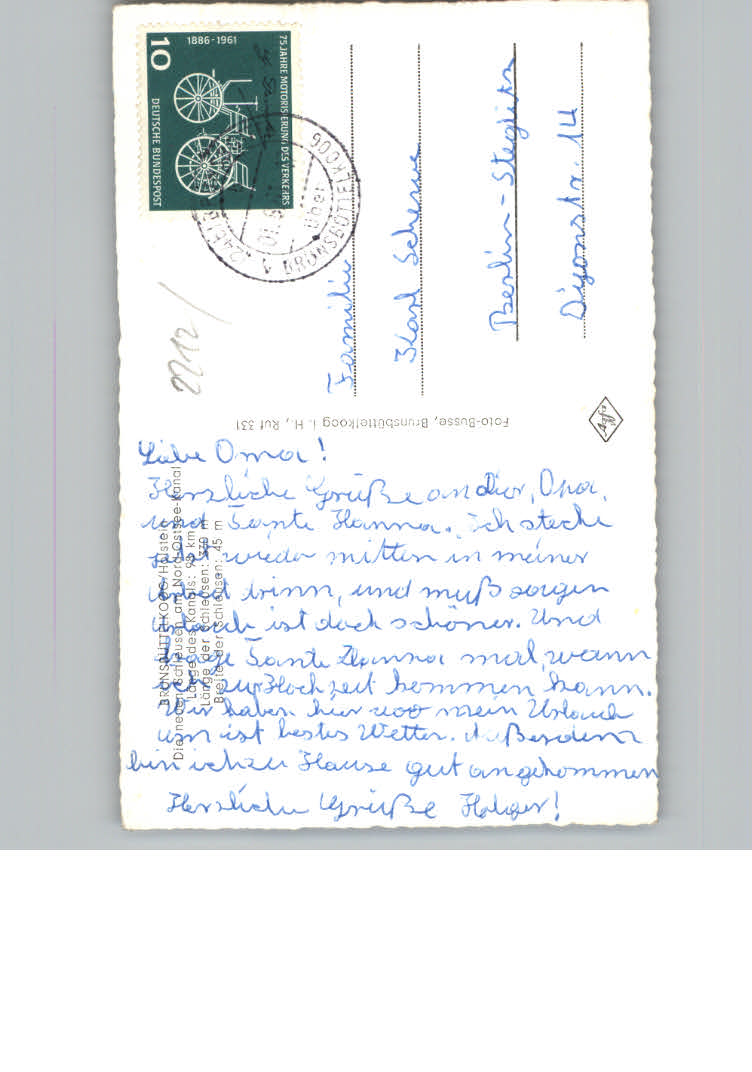 75 JAHRE MOTORISIERUNG DES VERKEHRS
1886-1961
10
DEUTSCHE BUNDESPOST
über
BRUNSBÜTTELKOOG
2212/
Familie
Karl Scheme
Berlin-Steglitz
Dijonstr. 14
Foto-Busse, Brunsbüttelkoog i. H., Ruf 331
Agfa
BRUNSBÜTTELKOOG/Holstein
Die neuen Schleusen am Nord-Ostsee-Kanal
Länge des Kanals: 98 km
Länge der Schleusen: 330 m
Breite der Schleusen: 45 m
Liebe Oma!
Herzliche Grüße an dir, Opa,
und Tante Hanna. Ich stecke
jetzt wieder mitten in meiner
Arbeit drinn, und muß sagen
Urlaub ist doch schöner. Und
frage Tante Hanna mal, wann
ich zur Hochzeit kommen kann.
Wir haben hier wo mein Urlaub
um ist bestes Wetter. Außerdem
bin ich zu Hause gut angekommen
Herzliche Grüße Holger!